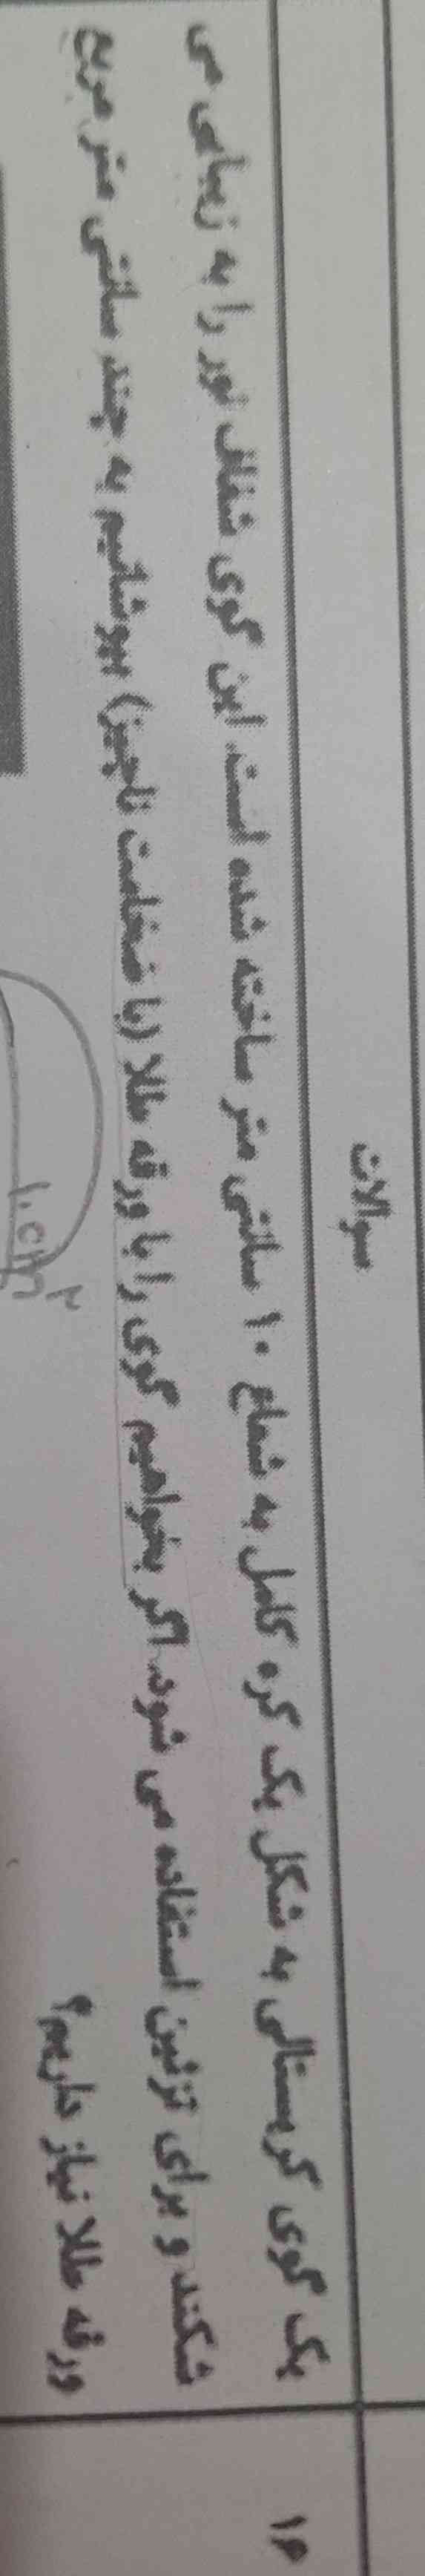 سوالات
۱۶
یک گوی کریستالی به شکل یک کره کامل به شعاع ۱۰ سانتی متر ساخته شده است. این گوی شفاف نور را به زیبایی می
شکند و برای تزئین استفاده می شود. اگر بخواهیم گوی را با ورقه طلا (با ضخامت ناچیز) بپوشانیم به چند سانتی متر مربع
ورقه طلا نیاز داریم؟
۱۰cm۲